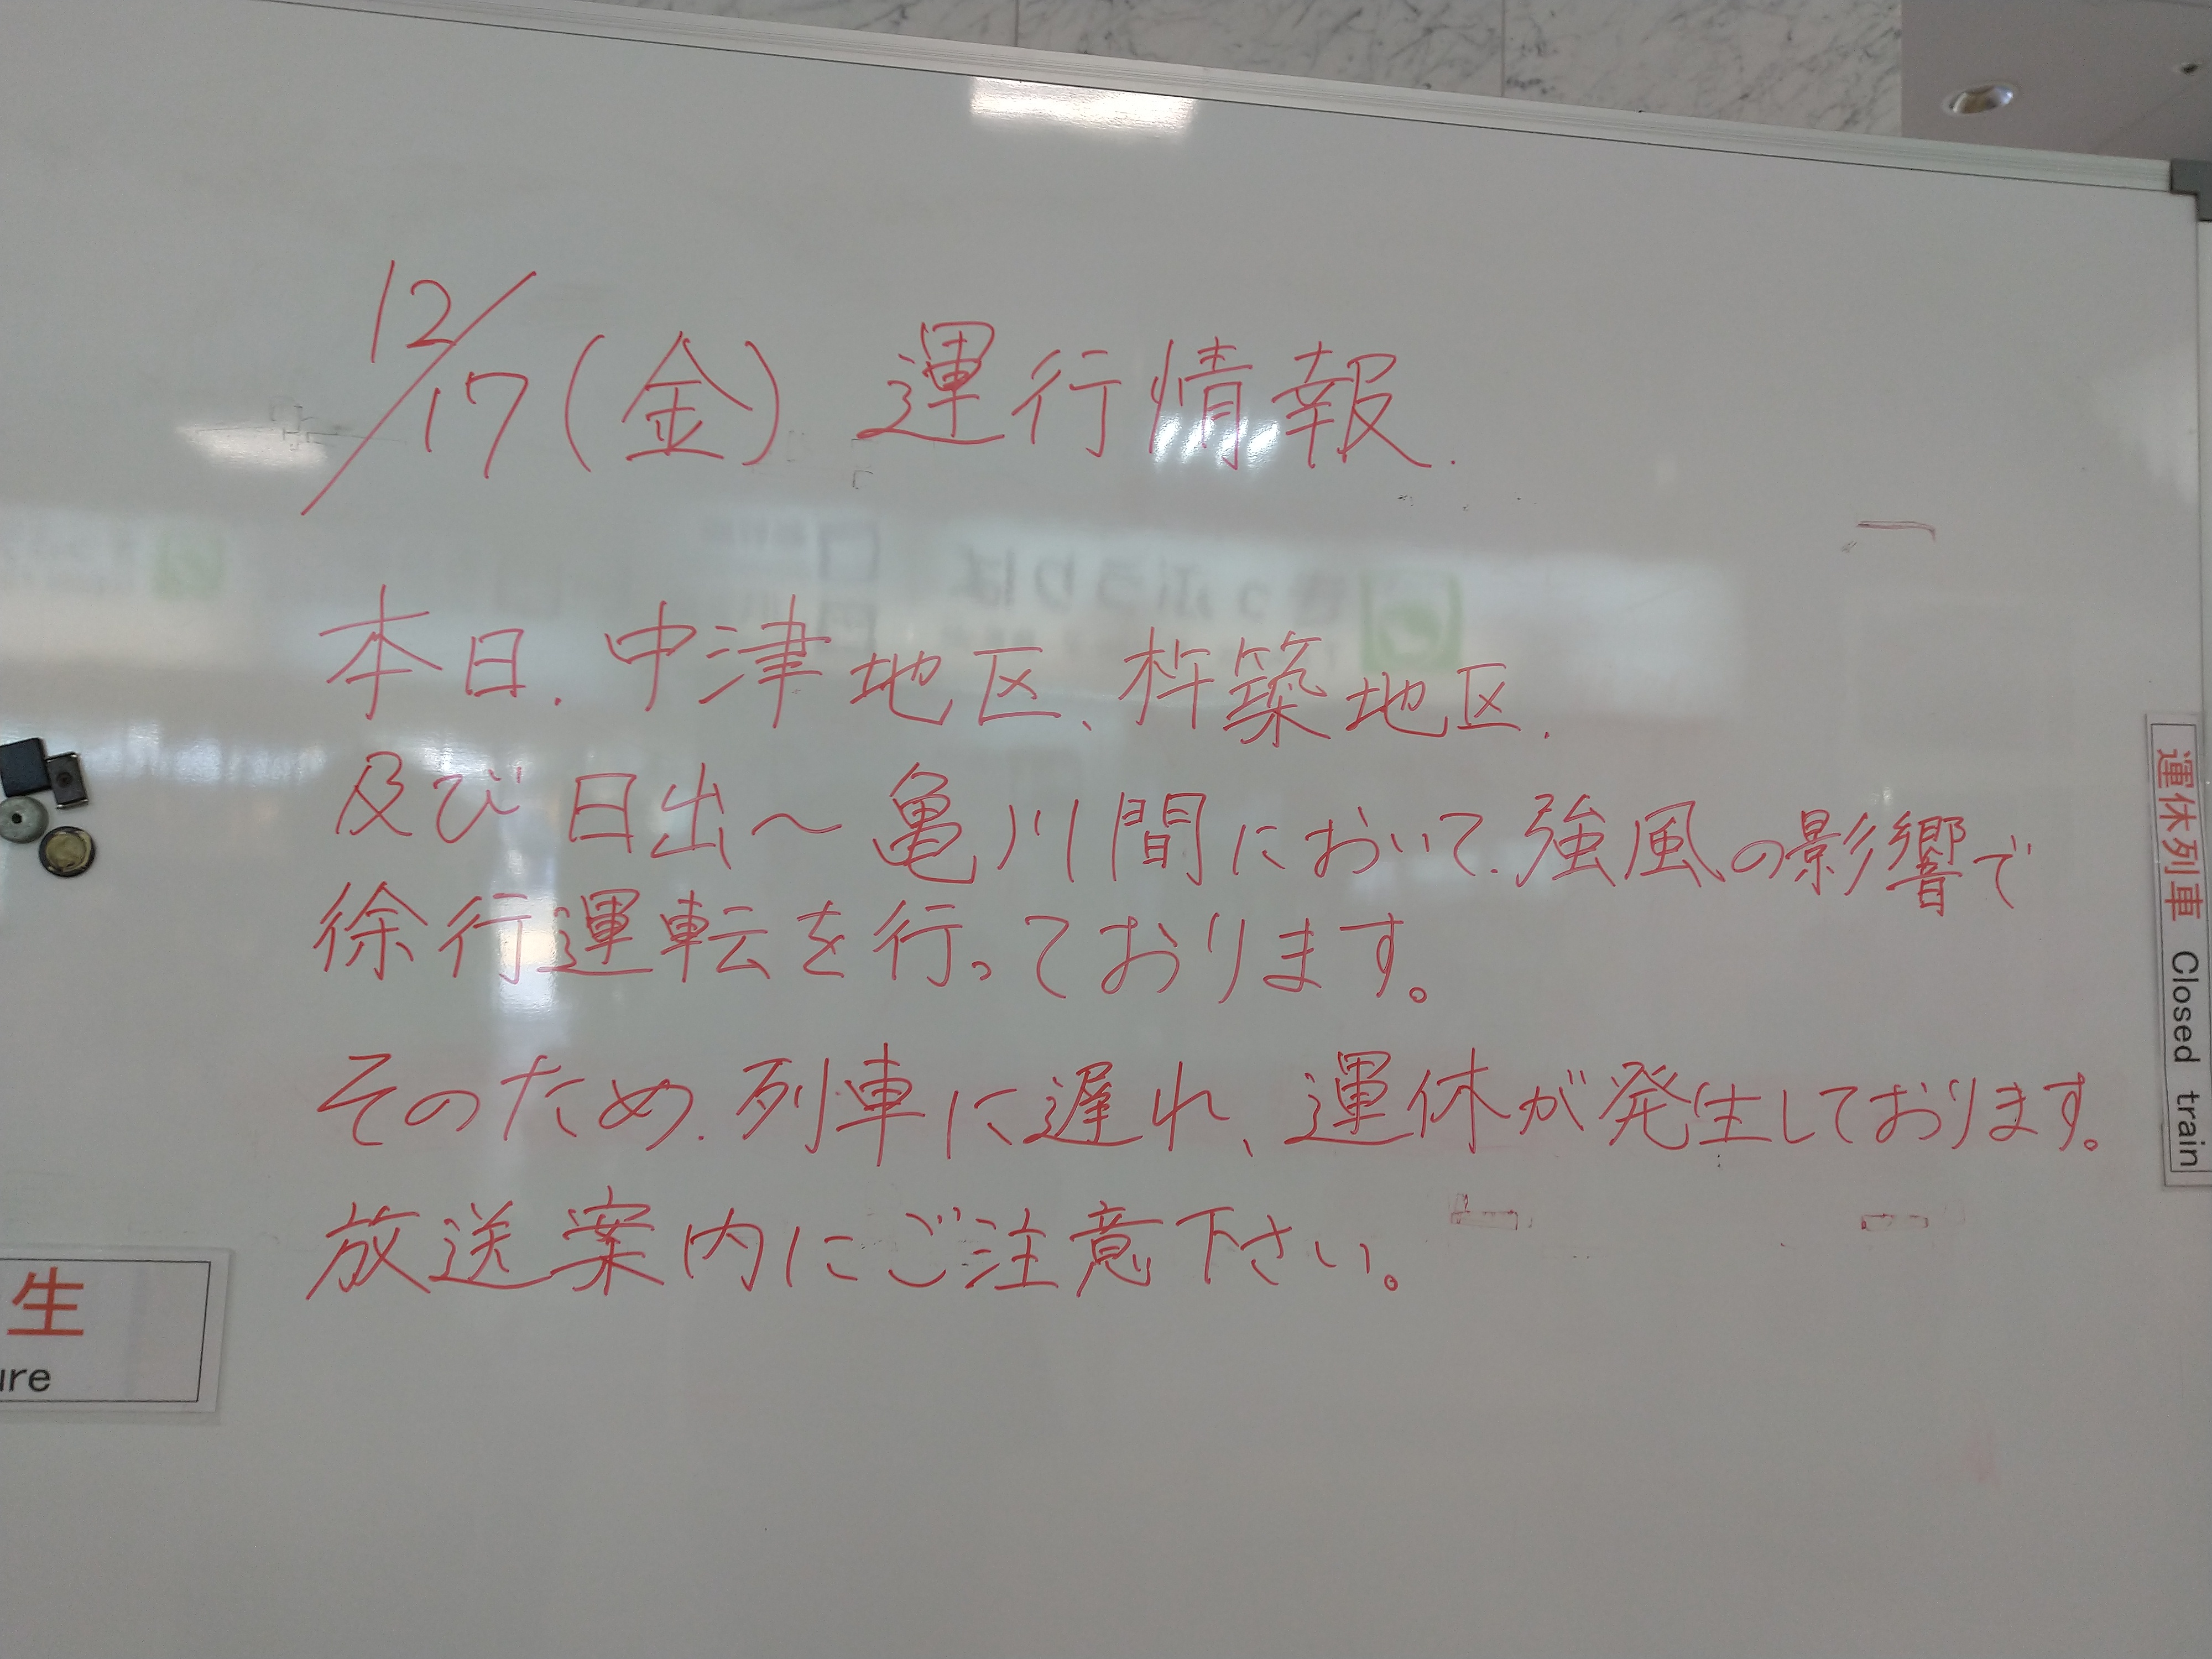 12/17(金) 運行情報.
本日、中津地区、杵築地区、
及び日出〜亀川間において、強風の影響で
徐行運転を行っております。
そのため、列車に遅れ、運休が発生しております。
放送案内にご注意下さい。
運休列車 Closed train
生
ure